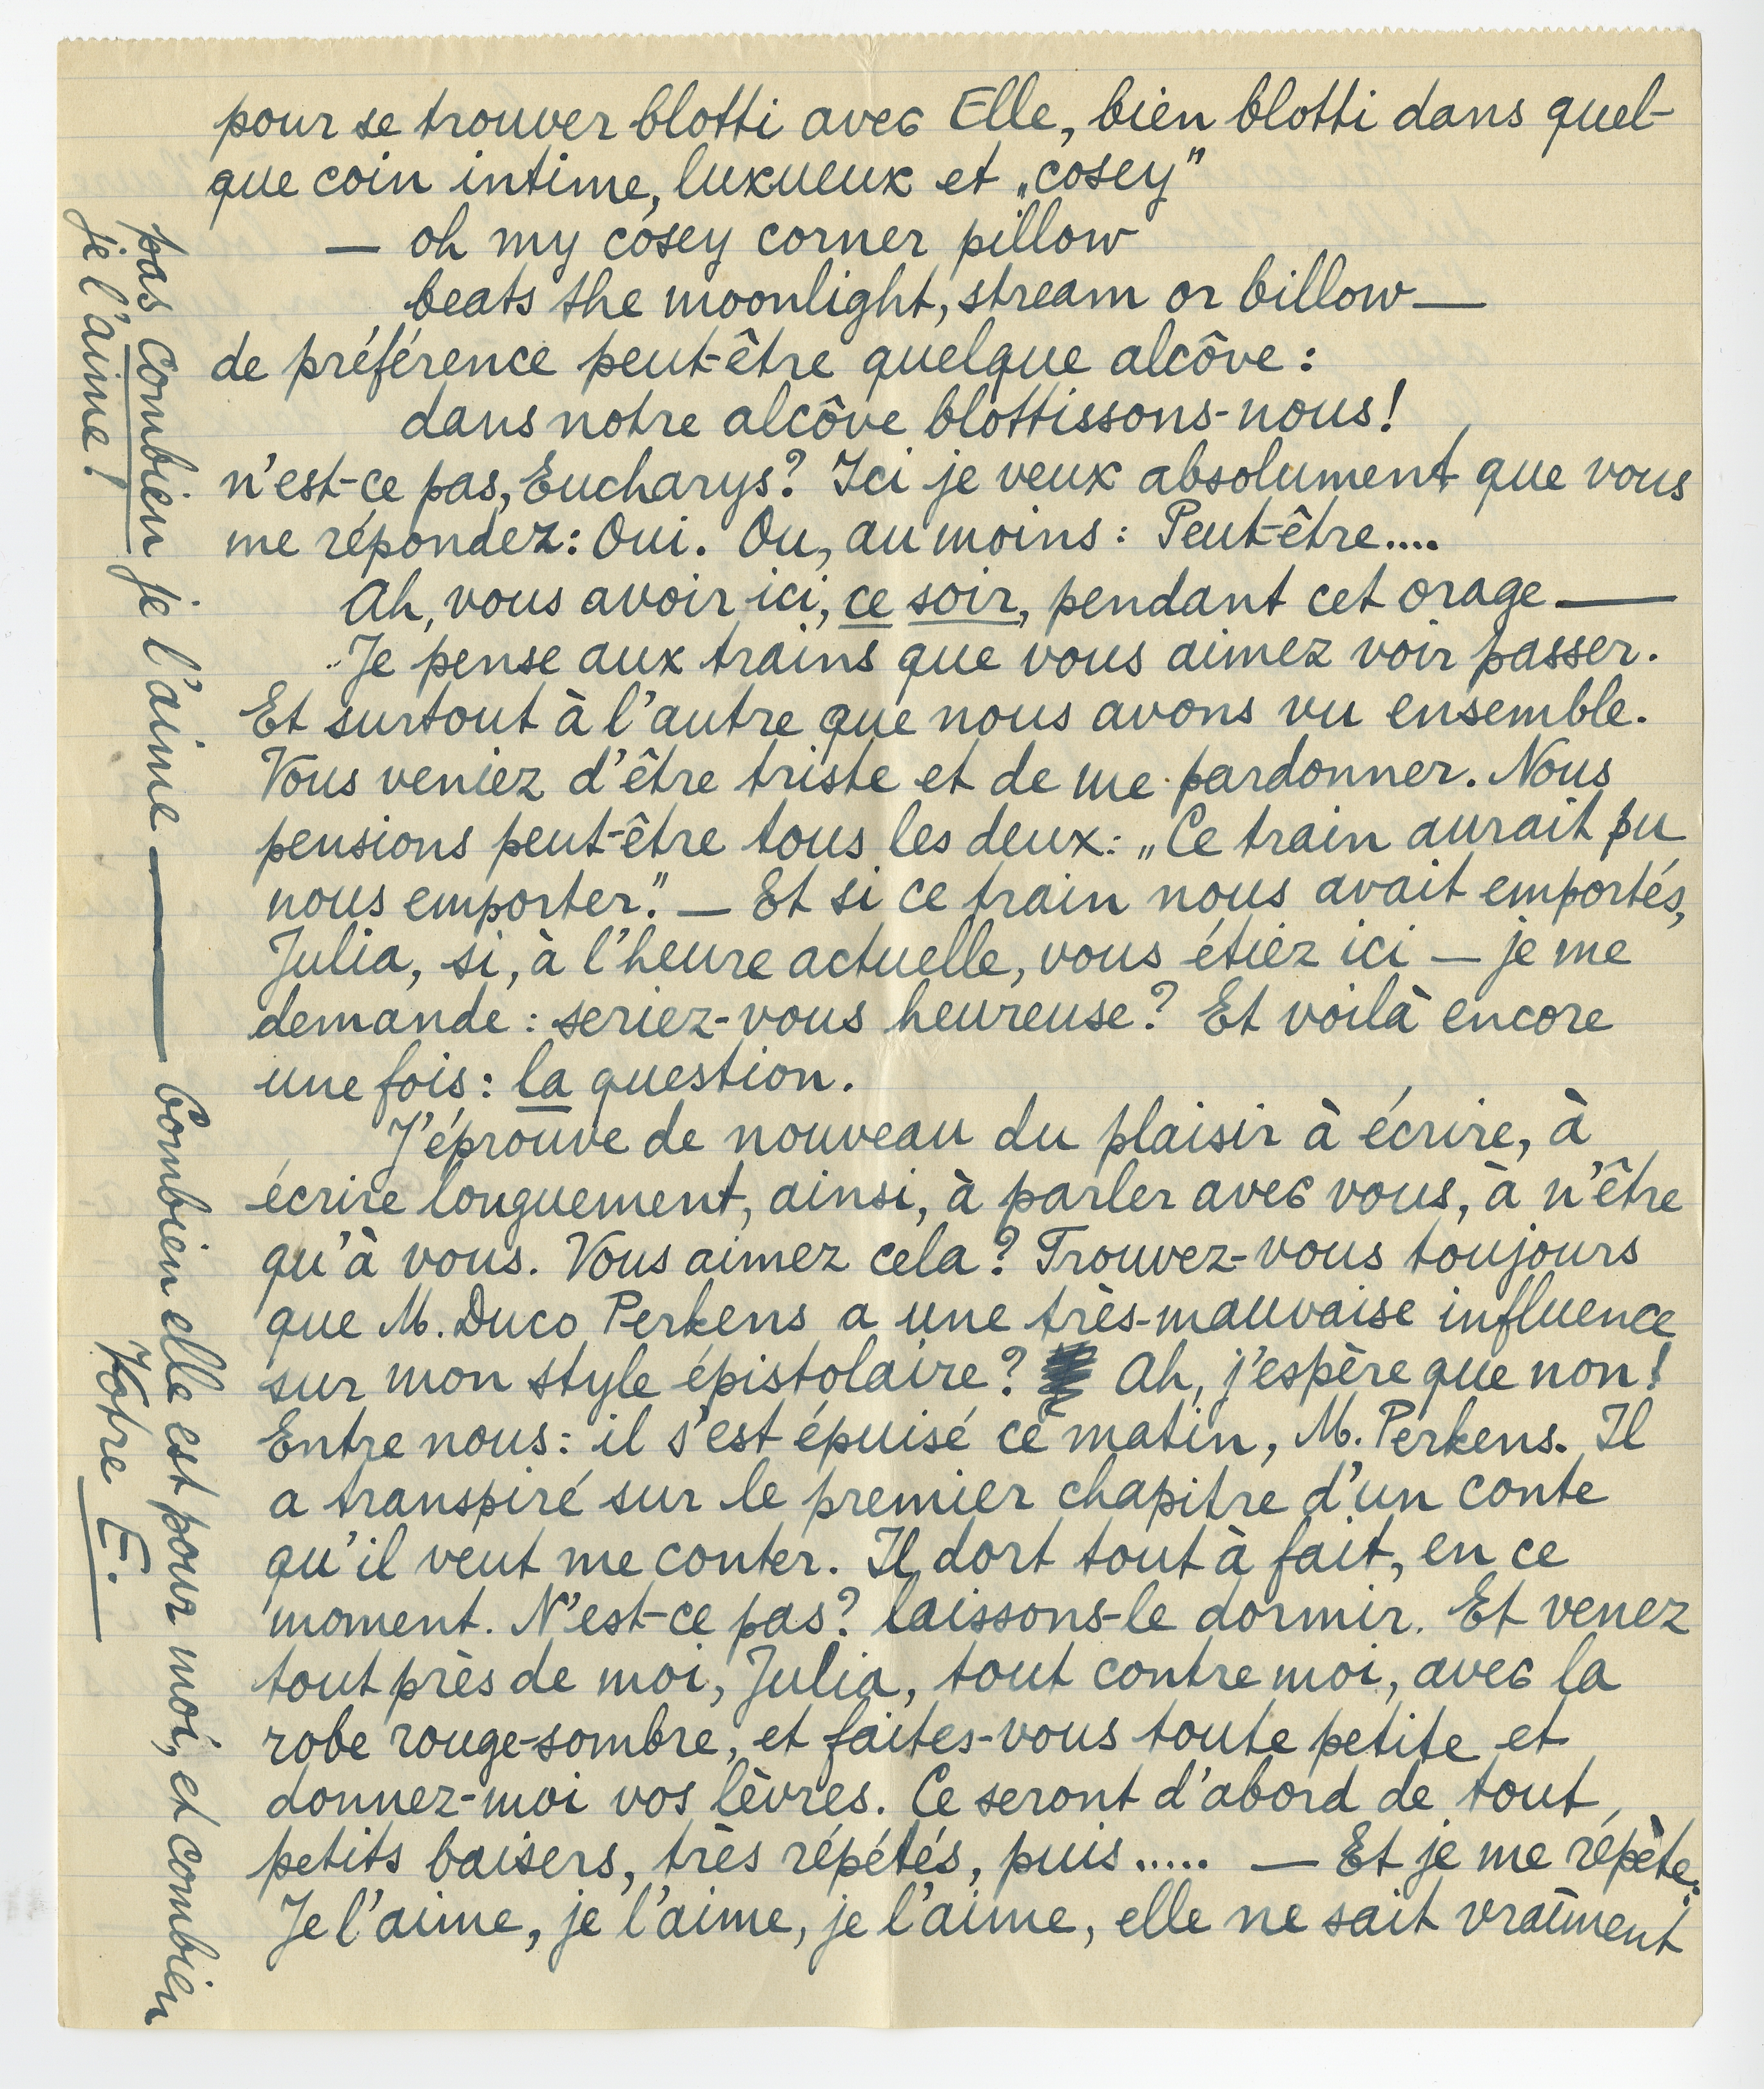 pour se trouver blotti avec Elle, bien blotti dans quel-
que coin intime, luxueux et „cosey”
— oh my cosey corner pillow
beats the moonlight, stream or billow —
de préférence peut-être quelque alcôve :
dans notre alcôve blottissons-nous!
n'est-ce pas, Eucharys? Ici je veux absolument que vous
me répondez: Oui. Ou, au moins : Peut-être....
Ah, vous avoir ici, ce soir, pendant cet orage —
Je pense aux trains que vous aimez voir passer.
Et surtout à l'autre que nous avons vu ensemble.
Vous veniez d'être triste et de me pardonner. Nous
pensions peut-être tous les deux: „Ce train aurait pu
nous emporter.” — Et si ce train nous avait emportés,
Julia, si, à l'heure actuelle, vous étiez ici — je me
demande : seriez-vous heureuse? Et voilà encore
une fois : la question.
J'éprouve de nouveau du plaisir à écrire, à
écrire longuement, ainsi, à parler avec vous, à n'être
qu'à vous. Vous aimez cela? Trouvez-vous toujours
que M. Duco Perkens a une très-mauvaise influence
sur mon style épistolaire? Ah, j'espère que non!
Entre nous : il s'est épuisé ce matin, M. Perkens. Il
a transpiré sur le premier chapitre d'un conte
qu'il veut me conter. Il dort tout à fait, en ce
moment. N'est-ce pas? laissons-le dormir. Et venez
tout près de moi, Julia, tout contre moi, avec la
robe rouge-sombre, et faites-vous toute petite et
donnez-moi vos lèvres. Ce seront d'abord de tout
petits baisers, très répétés, puis..... — Et je me répète:
Je l'aime, je l'aime, je l'aime, elle ne sait vraiment
pas combien je l'aime — Combien elle est pour moi, et combien
je l'aime!
Votre E.